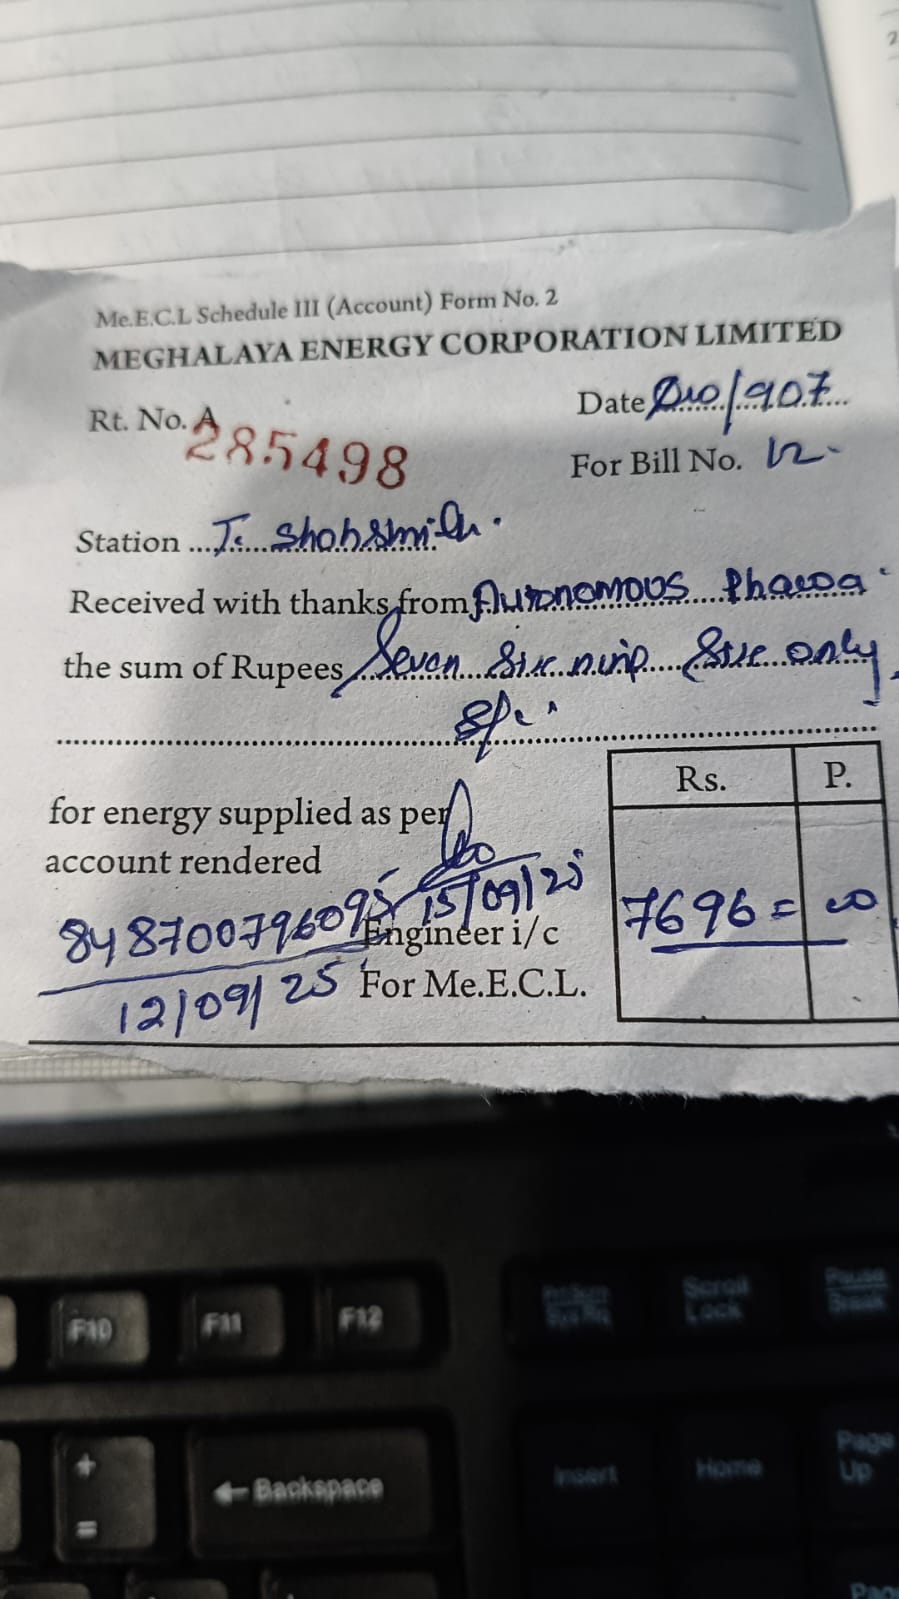 Me.E.C.L Schedule III (Account) Form No. 2
MEGHALAYA ENERGY CORPORATION LIMITED
Rt. No. A 285498
Date
For Bill No. 12
Station
Received with thanks from Autonomous
the sum of Rupees Seven Six nine Six only
for energy supplied as per
account rendered
Rs. P.
7696 = 00
848700796095 15/09/25
Engineer i/c
12/09/25 For Me.E.C.L.
F10 F11 F12 Scroll Lock Pause Break
+ =
Backspace Insert Home Page Up